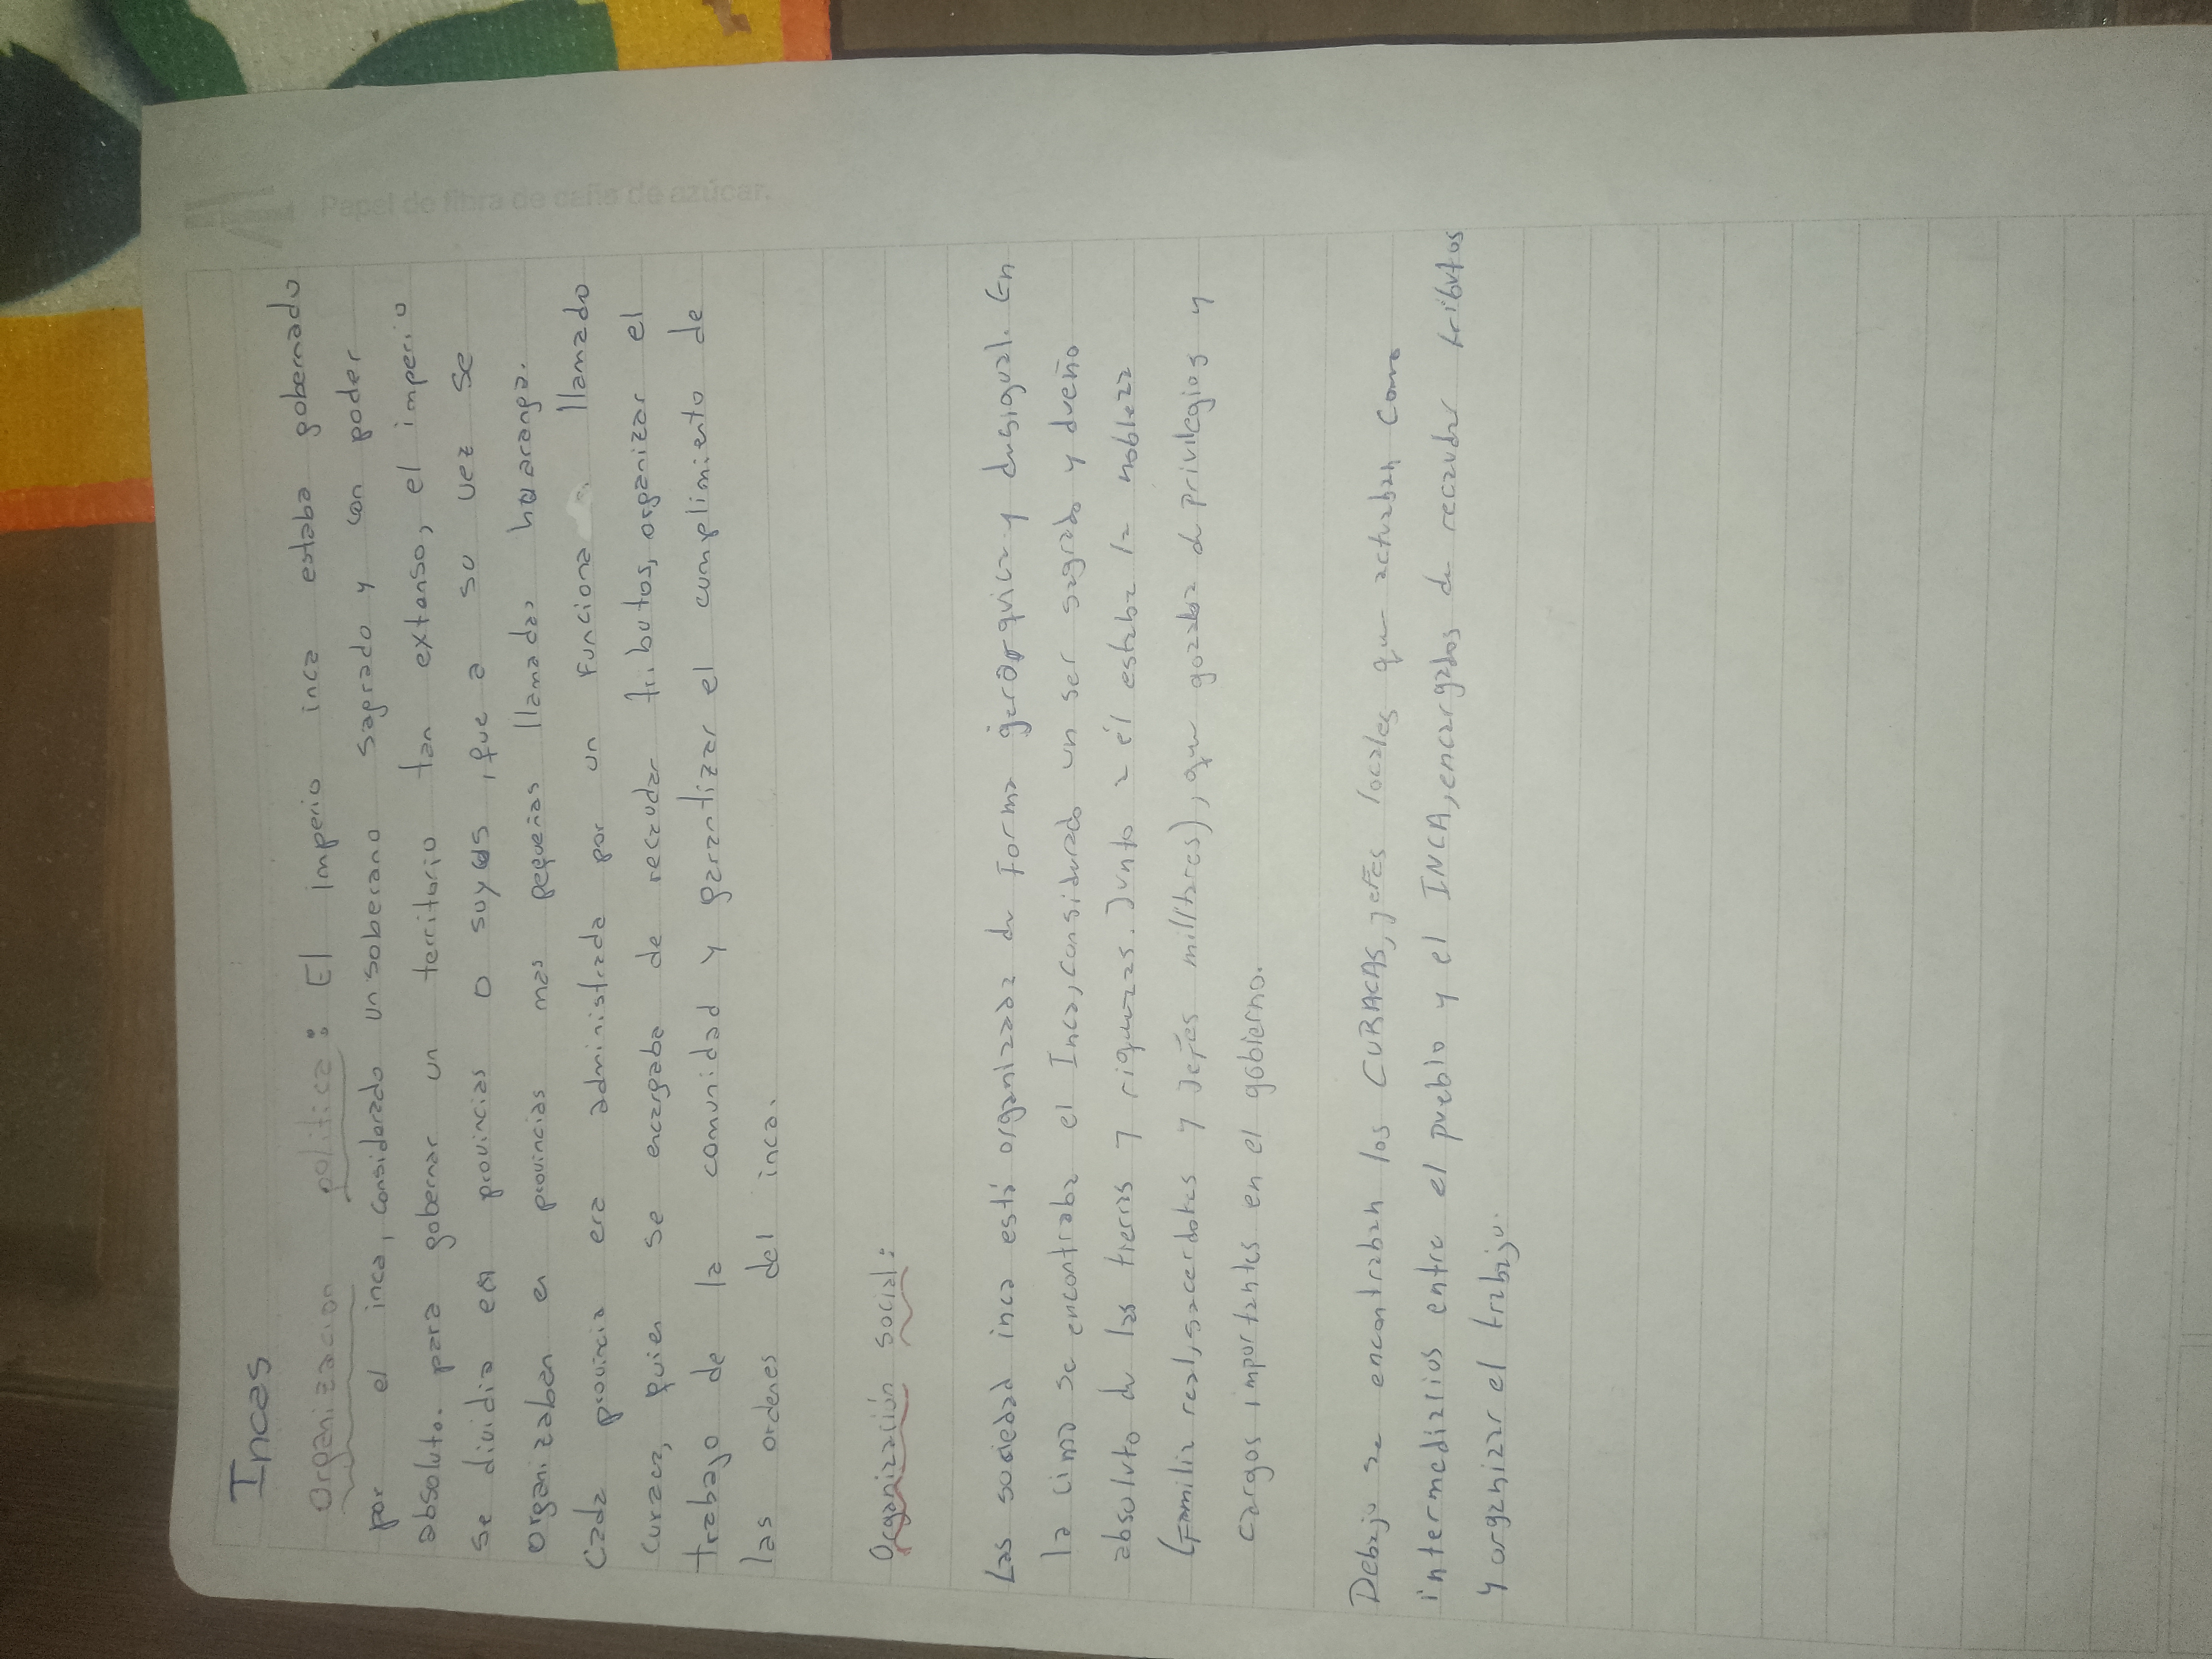 Papel de fibra de caña de azúcar.
Incas
Organizacion politica: El imperio inca estaba gobernado
por el inca, considerado un soberano sagrado y con poder
absoluto. para gobernar un territorio tan extanso, el imperio
se dividia en provincias o suyos, que a su vez se
organizaban en provincias mas pequeñas llamadas huaranga.
Cada provincia era administrada por un funciona llamado
curaca, quien se encargaba de recaudar tributos, organizar el
trabajo de la comunidad y garantizar el cumplimiento de
las ordenes del inca.
Organización social:
Las sociedad inca está organizada de forma jerárquica y desigual. En
la cima se encontraba el Inca, considerado un ser sagrado y dueño
absoluto de las tierras y riquezas. Junto a él estaba la nobleza
(Familia real, sacerdotes y Jefes militares), que gozaba de privilegios y
cargos importantes en el gobierno.
Debajo se encontraban los CURACAS, jefes locales que actuaban como
intermediarios entre el pueblo y el INCA, encargados de recaudar tributos
y organizar el trabajo.